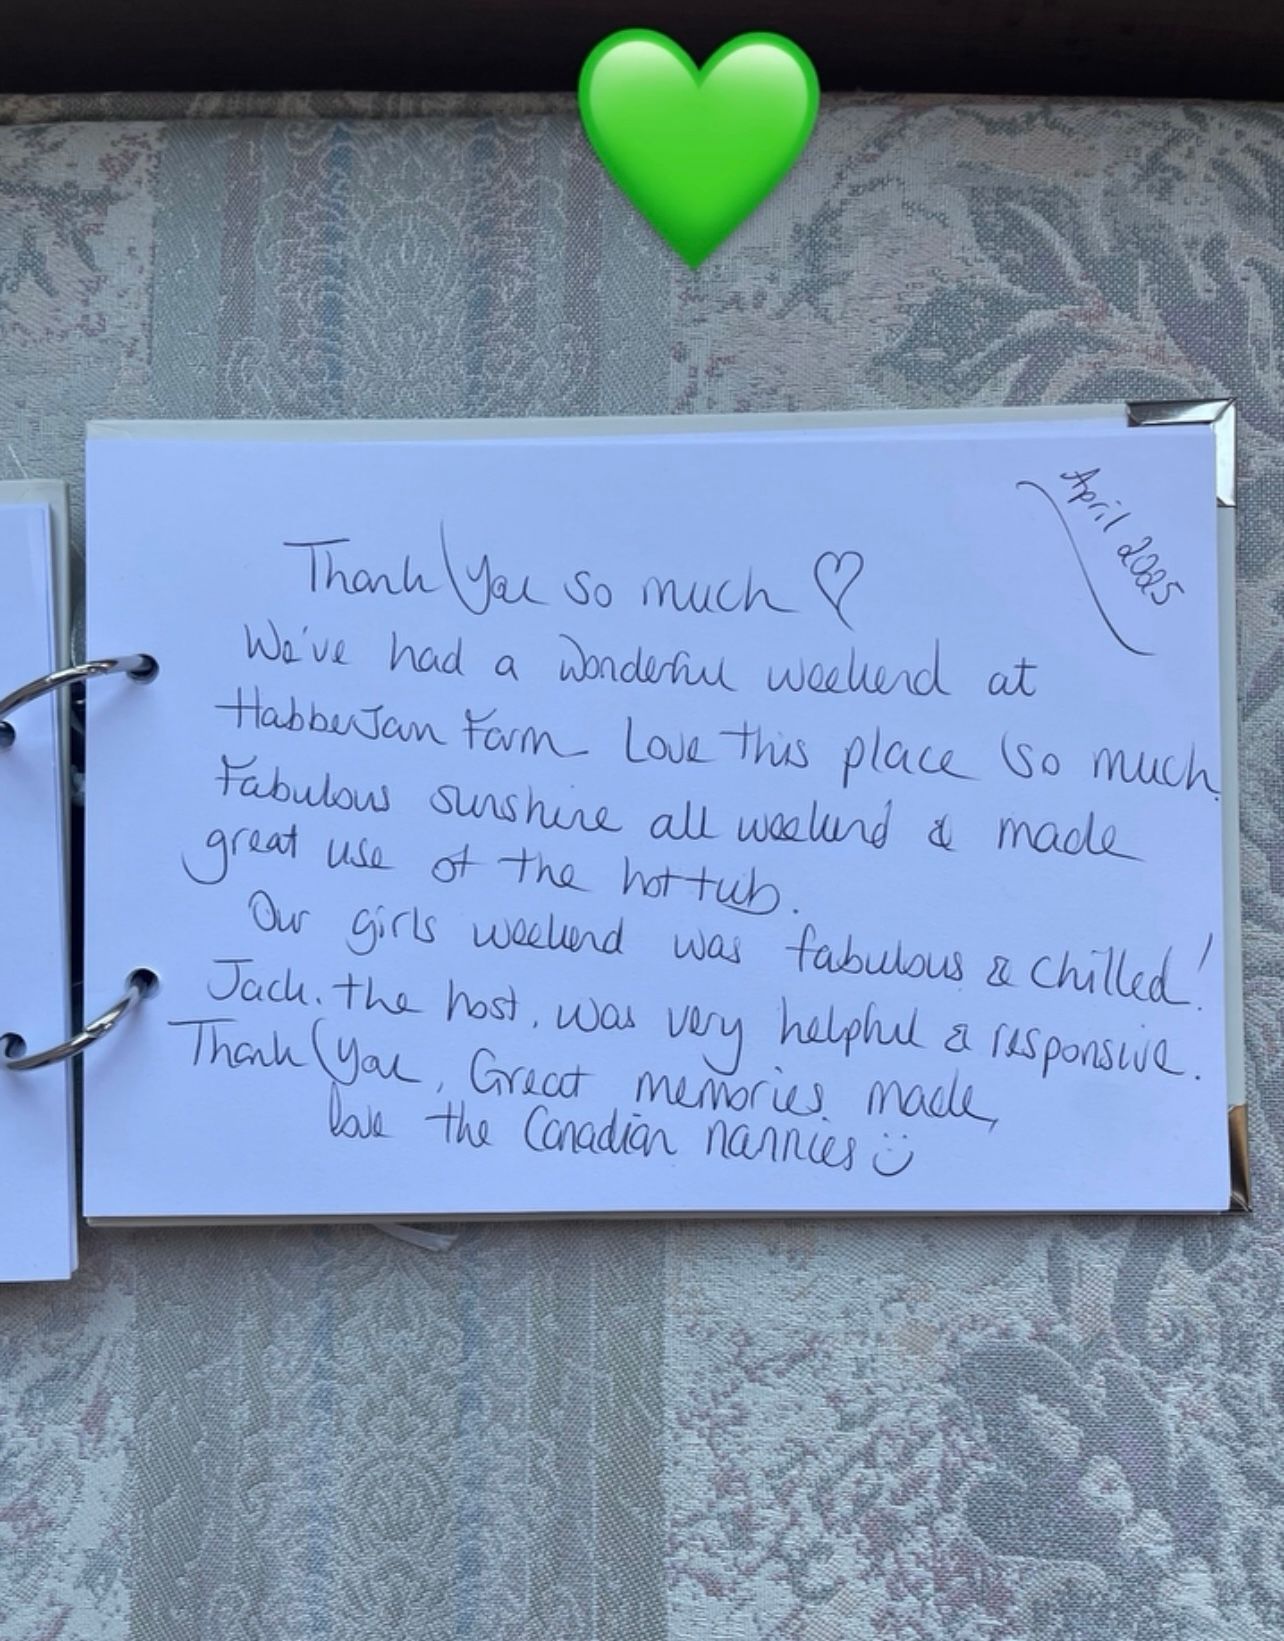 April 2025
Thank You so much ♡
We've had a wonderful weekend at
HabberJam Farm Love this place so much.
Fabulous sunshine all weekend & made
great use of the hot tub.
Our girls weekend was fabulous & chilled!
Jack, the host, was very helpful & responsive.
Thank You, Great memories made,
love the Canadian nannies ☺